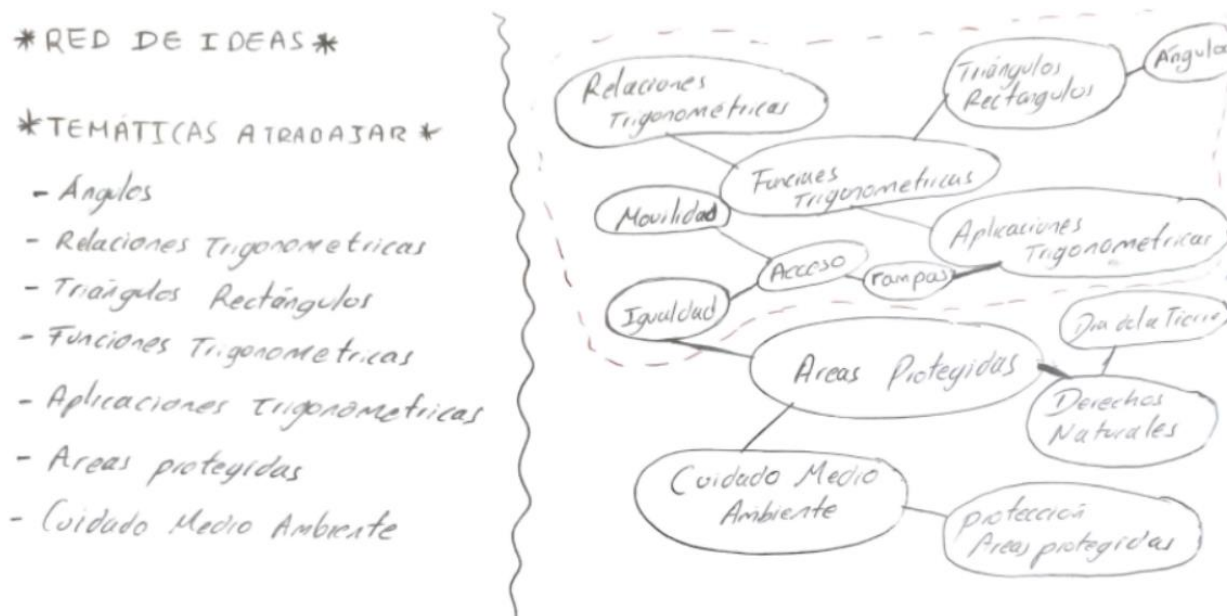 *RED DE IDEAS*
*TEMÁTICAS A TRADAJAR*
- Ángulos
- Relaciones Trigonometricas
- Triángulos Rectángulos
- Funciones Trigonometricas
- Aplicaciones Trigonometricas
- Areas protegidas
- Cuidado Medio Ambiente
Relaciones
Trigonométricas
Triángulos
Rectangulos
Ángulos
Funciones
Trigonometricas
Movilidad
Aplicaciones
Trigonometricas
Acceso
rampas
Igualdad
Dia de la Tierra
Areas Protegidas
Derechos
Naturales
Cuidado Medio
Ambiente
protección
Areas protegidas